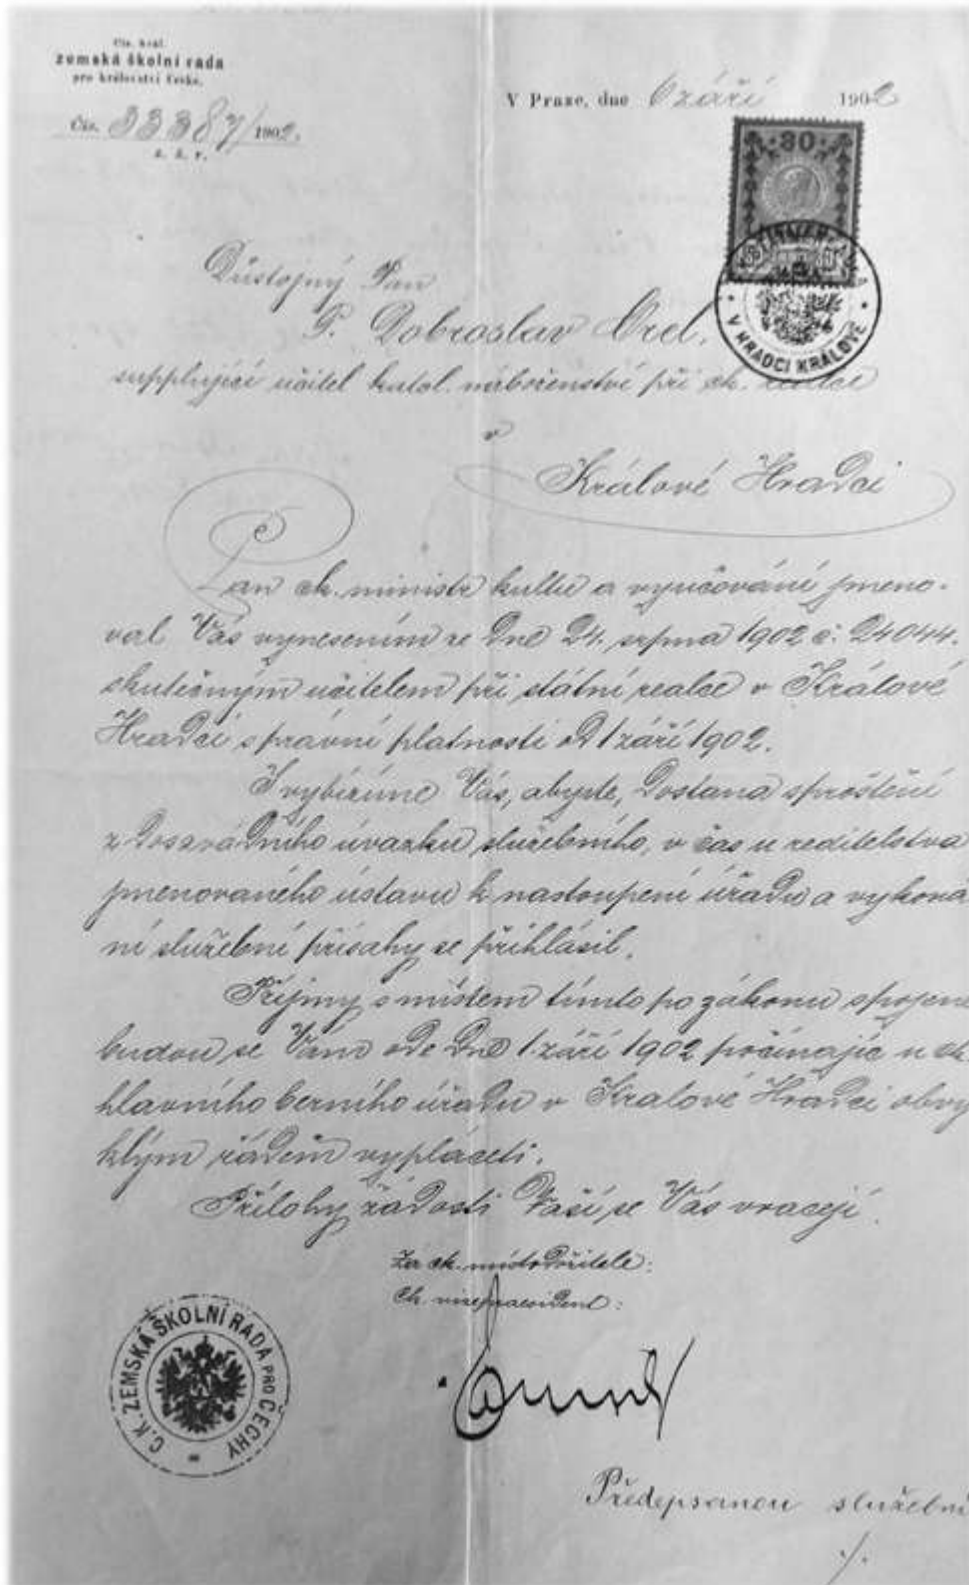 Cís. král.
zemská školní rada
pro království České.
Čís. 33387/1902.
z. š. r.
V Praze, dne 6 září 1902
30
V HRADCI KRÁLOVÉ
Důstojný Pan
P. Dobroslav Orel,
supplující učitel katol. náboženství při ck. realce
v
Králové Hradci
Pan ck. ministr kultu a vyučování jmeno-
val Vás vynesením ze dne 24. srpna 1902 č. 24044.
skutečným učitelem při státní realce v Králové
Hradci s právní platností od 1 září 1902.
Vás, abyste, dostana sproštění
z dosavádního úvazku služebního, v čas u reditelstva
jmenovaného ústavu k nastoupení úřadu a vykoná
ní služební přísahy se přihlásil.
Příjmy s místem tímto po zákonu spojené
budou se Vám ode dne 1. září 1902 počínajíc u ck
hlavního berního úřadu v Králové Hradci obvy
klým řádem vypláceti.
Přílohy žádosti Vaší se Vás vracejí.
Za ck. místodržitele:
Ck. vicepraesident:
C. K. ZEMSKÁ ŠKOLNÍ RADA PRO ČECHY
Předepsanou služební
./.